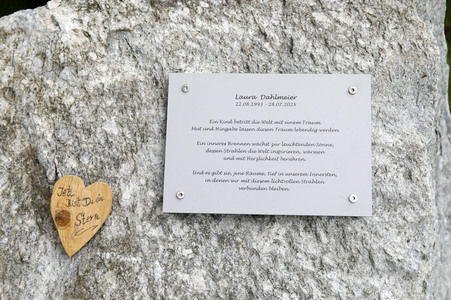 Laura Dahlmeier
22.08.1993 - 28.07.2025
Ein Kind betritt die Welt mit einem Traum.
Mut und Hingabe lassen diesen Traum lebendig werden.
Ein inneres Brennen wächst zur leuchtenden Sonne,
dessen Strahlen die Welt inspirieren, wärmen
und mit Herzlichkeit berühren.
Und es gibt sie, jene Räume, tief in unserem Innersten,
in denen wir mit diesem lichtvollen Strahlen
verbunden bleiben.
Jetzt
bist Du ein
Stern